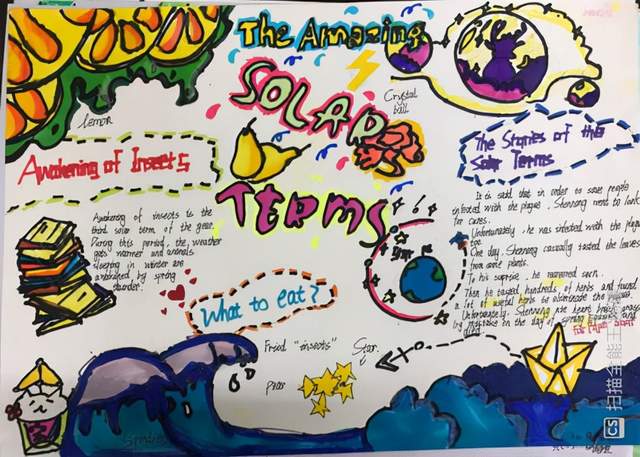 The Amazing
SOLAR
TERMS
lemon
Crystal
ball
Awakening of Insects
The Stories of the
Solar Terms
Awakening of insects is the
third solar term of the year.
During this period, the weather
gets warmer and animals
sleeping in winter are
awakened by spring
thunder.
It is said that in order to save people
infected with the plague, Shennong went to look
for cures.
Unfortunately, he was infected with the plague
too.
One day, Shennong casually tasted the leaves
from one plant.
To his surprise, he recovered soon.
Then he tasted hundreds of herbs and found
a lot of useful herbs to eliminate the
Unfortunately, Shennong ate heart break grass
by mistake on the day of spring equinox and
died.
What to eat?
Fried "insects"
Star
pear
扫描全能王
CS